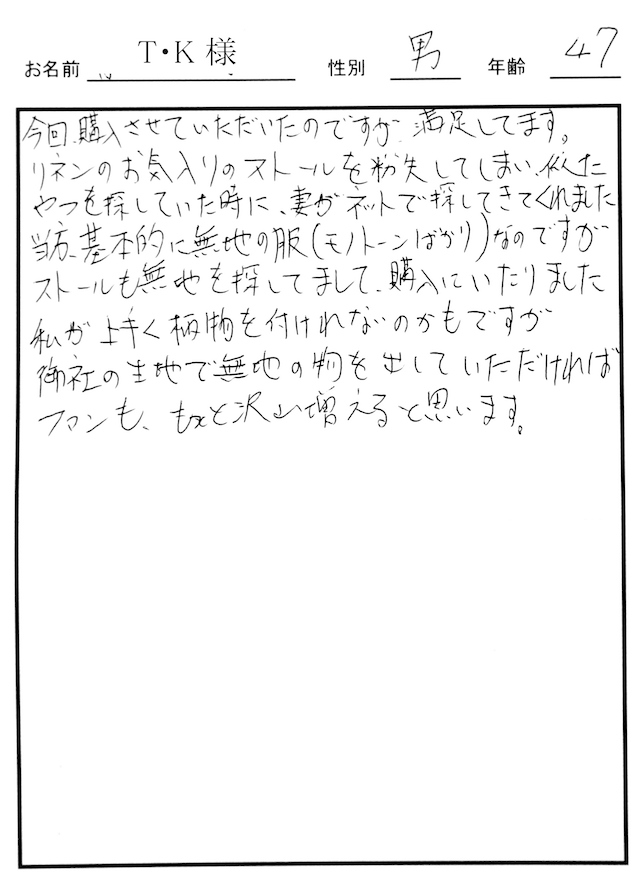 お名前 T・K 様 性別 男 年齢 47
今回、購入させていただいたのですが、満足してます。
リネンのお気入りのストールを紛失してしまい、似た
やつを探していた時に、妻がネットで探してきてくれました
当方、基本的に無地の服(モノトーンばかり)なのですが
ストールも無地を探してまして、購入にいたりました
私が上手く柄物を付けれないのかもですが
御社の生地で無地の物を出していただければ
ファンも、もっと沢山増えると思います。